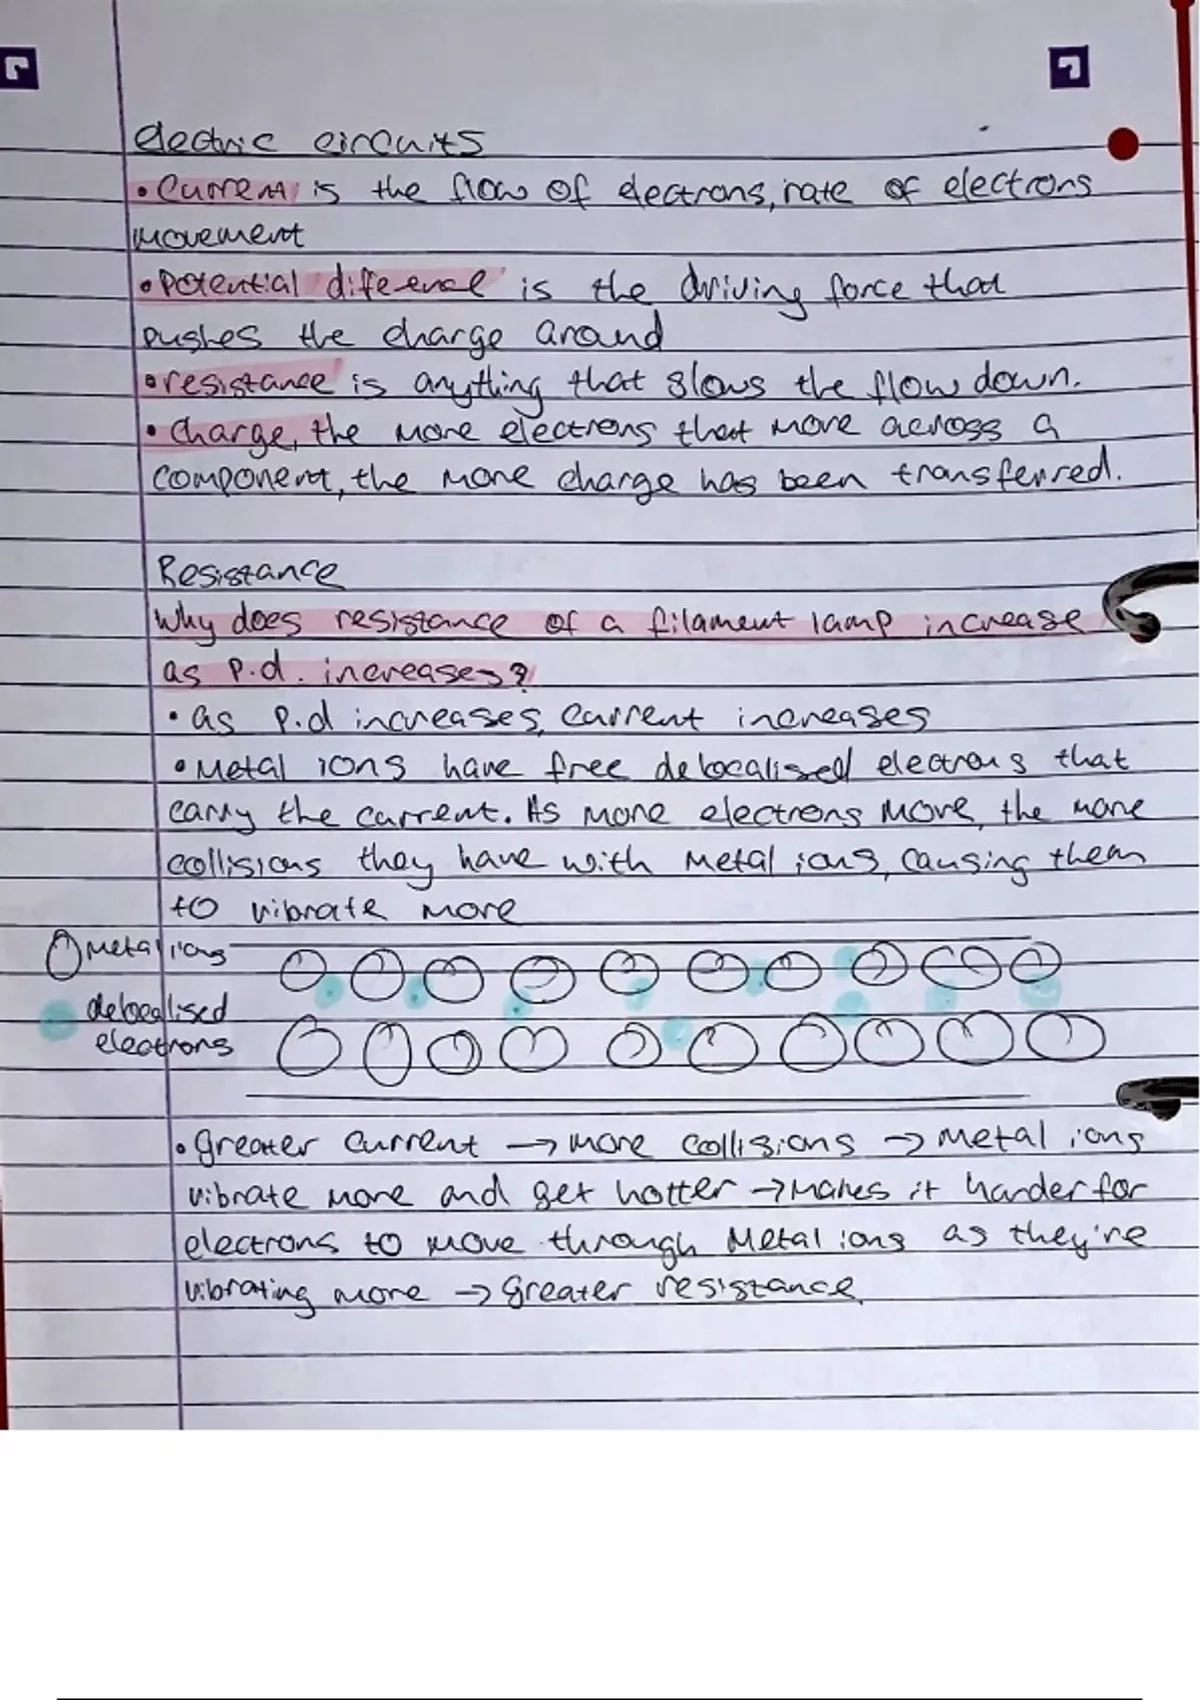 electric circuits
• Current is the flow of electrons, rate of electrons
movement
• Potential diference is the driving force that
pushes the charge around
• resistance is anything that slows the flow down.
• Charge, the more electrons that move across a
component, the more charge has been transferred.
Resistance
Why does resistance of a filament lamp increase
as p.d. increases?
• as p.d increases, current increases
• Metal ions have free delocalised electrons that
carry the current. As more electrons move, the more
collisions they have with metal ions, causing them
to vibrate more
metal ions
delocalised
electrons
• greater current → more collisions → metal ions
vibrate more and get hotter → makes it harder for
electrons to move through metal ions as they're
vibrating more → greater resistance.